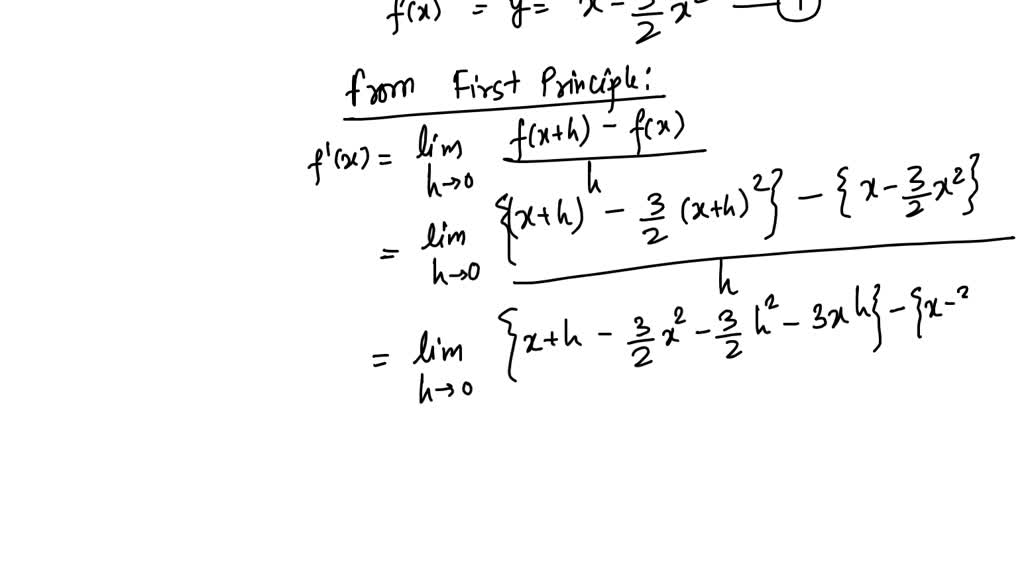 f(x) = y = x - 3/2 x² — ①
from First Principle:
f'(x) = lim h→0 f(x+h) - f(x) / h
= lim h→0 {(x+h) - 3/2 (x+h)²} - {x - 3/2 x²} / h
= lim h→0 {x+h - 3/2 x² - 3/2 h² - 3xh} - {x -